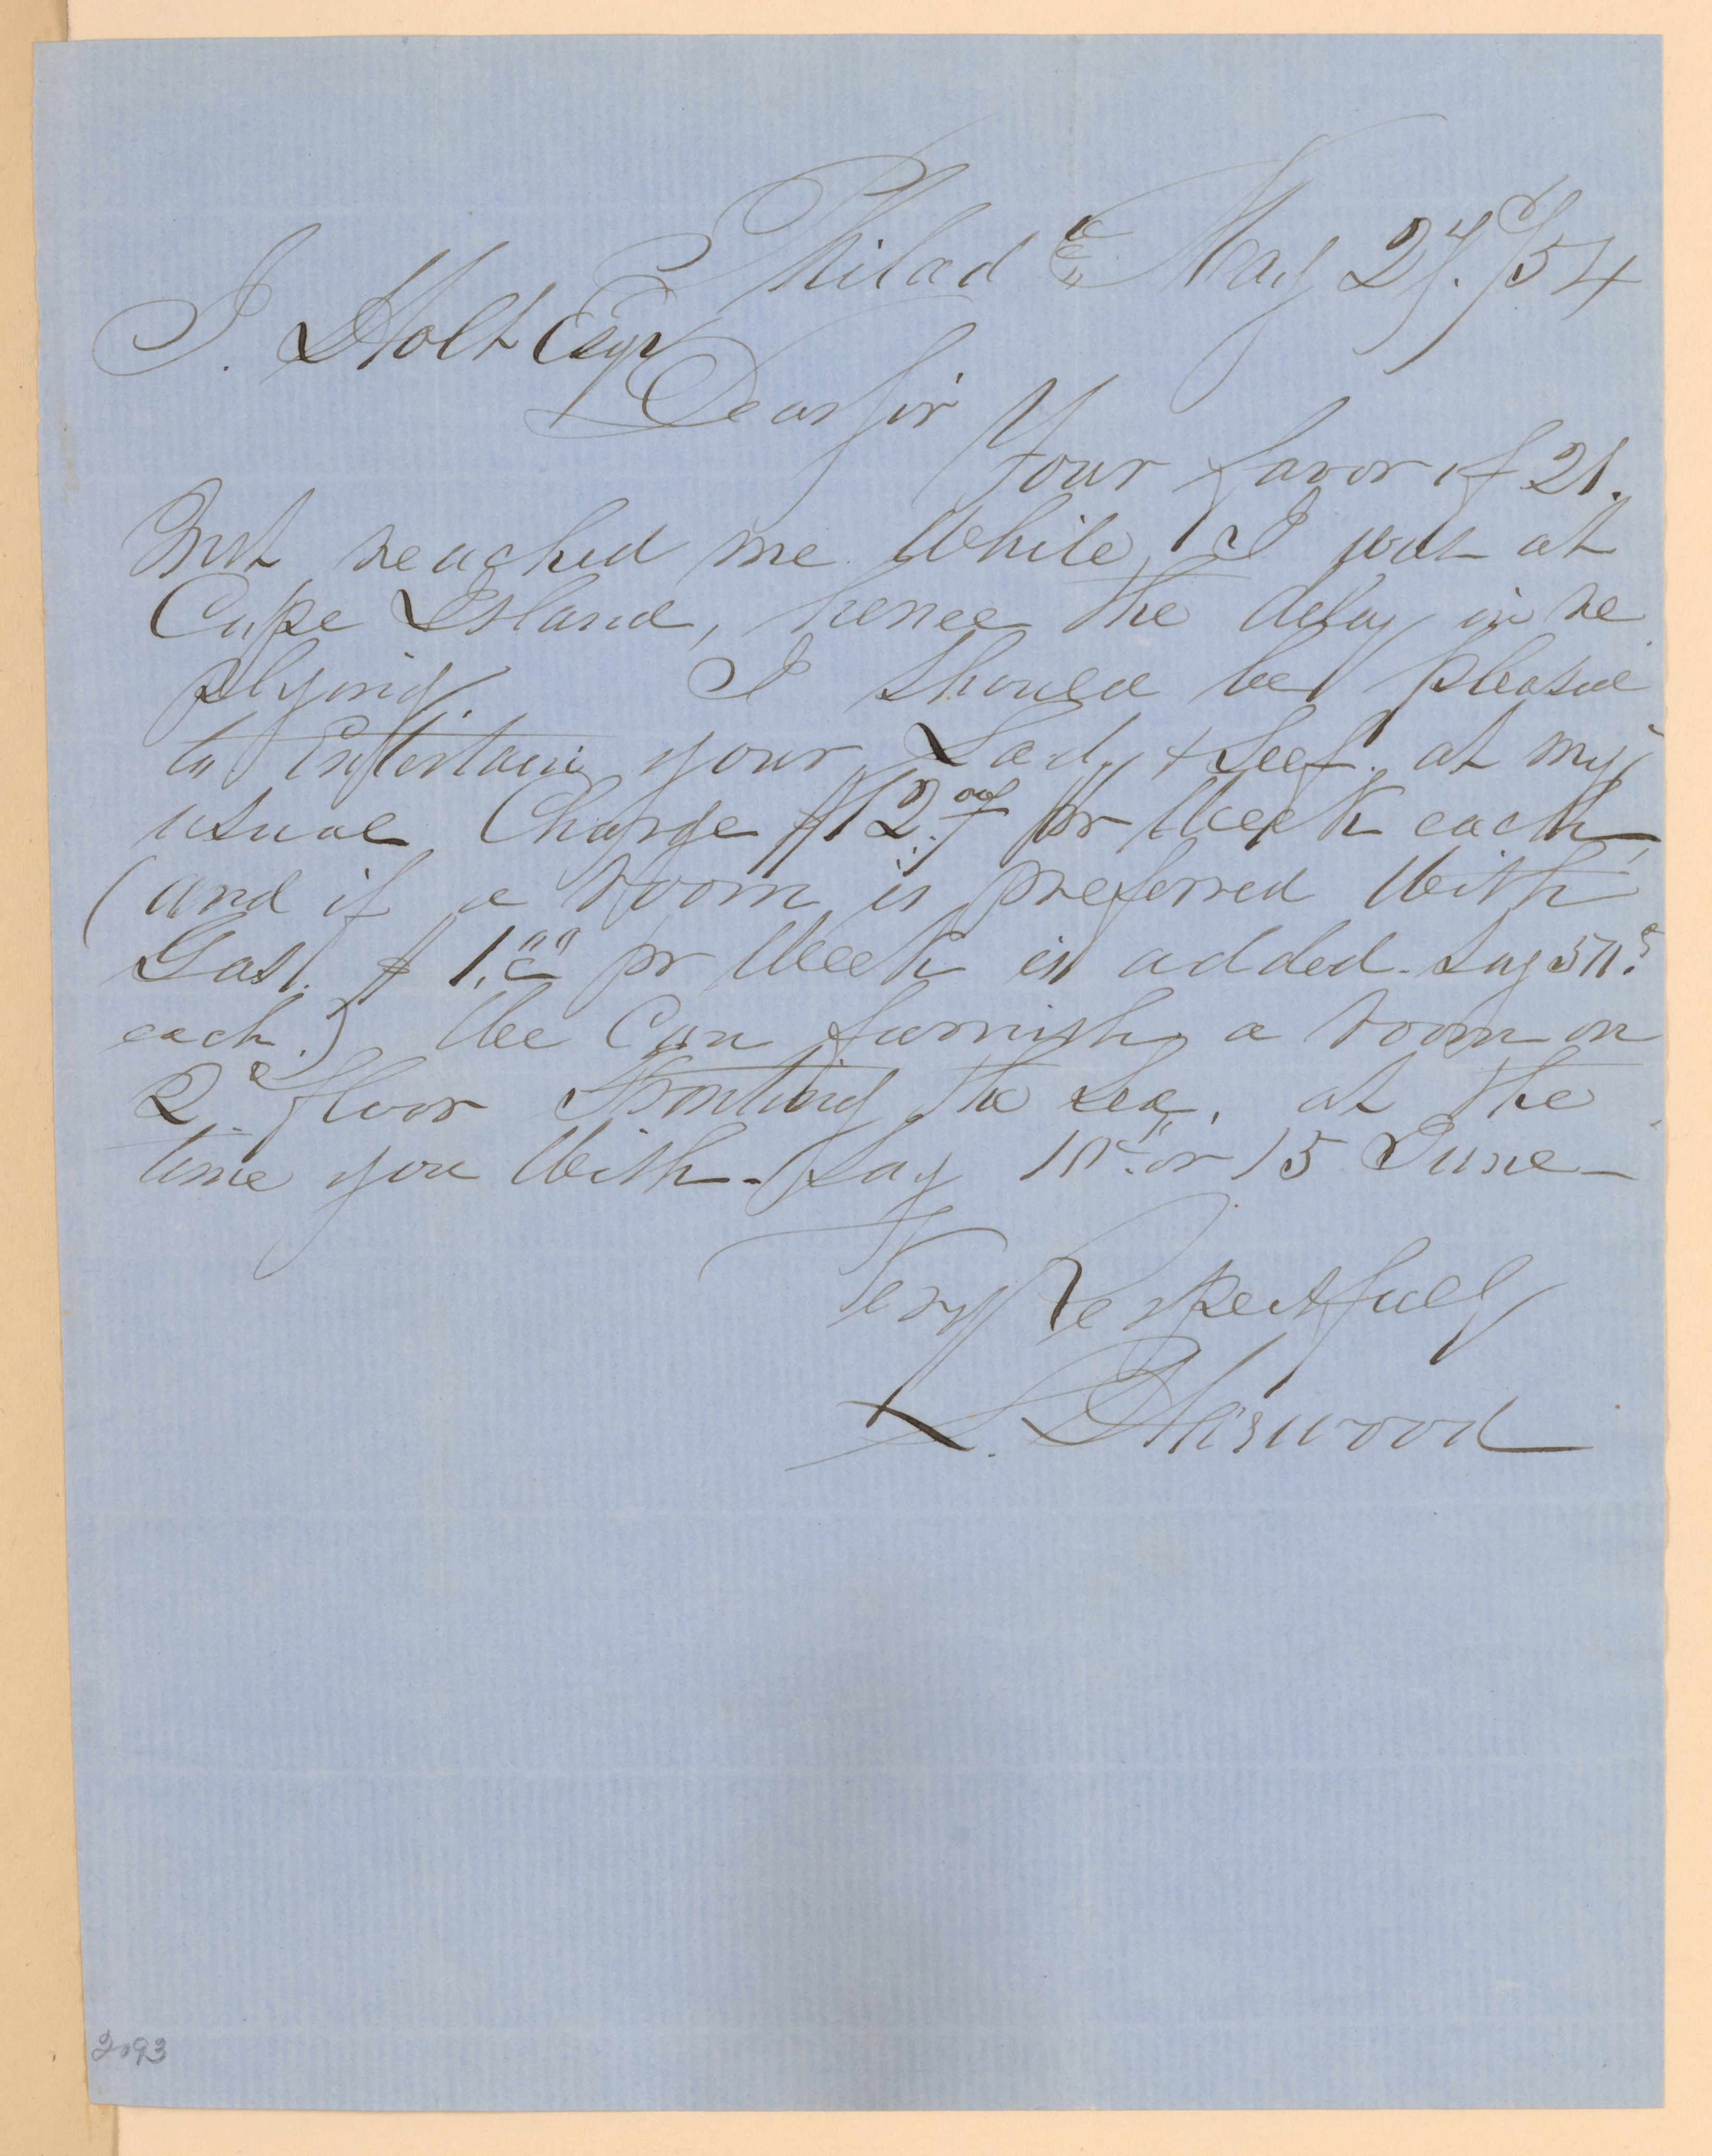 Philad. May 27./54
J. Holt Esqr
Dear Sir
Your favor of 21.
Inst reached me while I was at
Cape Island, hence the delay in re
plying. I should be pleased
to Entertain your Lady & self. at my
usual Charge $12.00 pr Week each
(and if a room is preferred With
Gas. $1.00 pr Week is added. Say 50c
each.) We Can furnish a room on
2d floor Fronting the sea, at the
time you Wish. Say 10th or 15 June
Very Respectfully
L. Harwood
2093